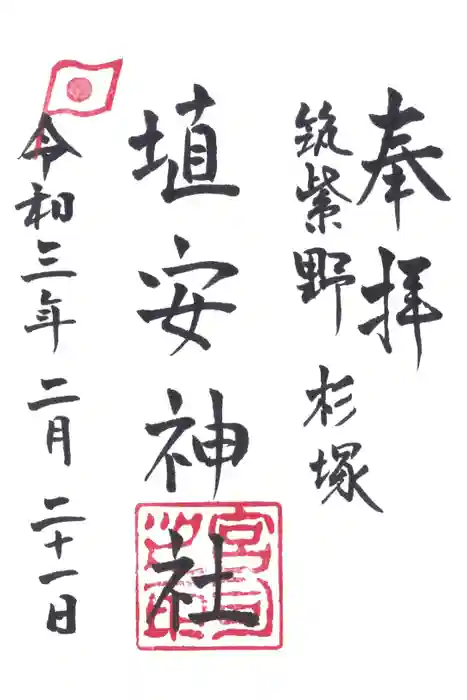 奉拝
筑紫野 杉塚
埴安神社
令和三年 二月 二十一日